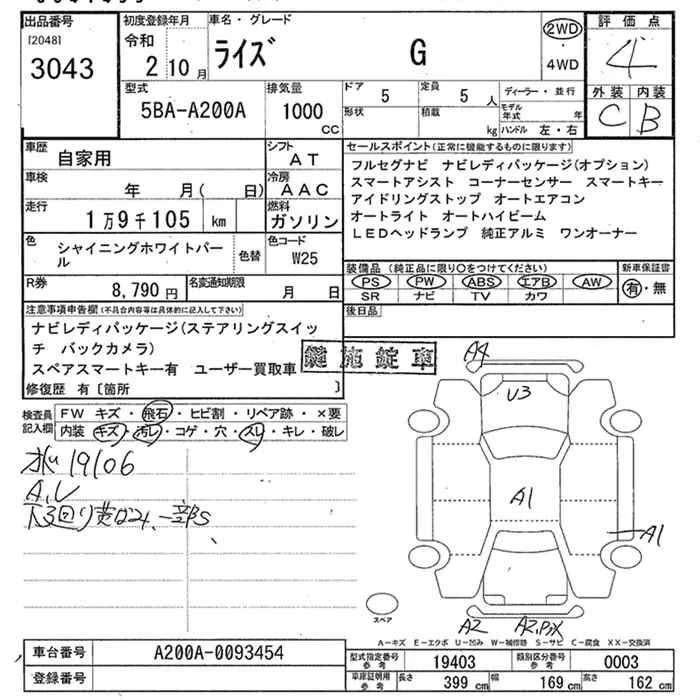 出品番号 初度登録年月 車名・グレード 2WD 評価点
[2048] 令和 ライズ G 4
3043 2 10月 4WD
外装 内装
型式 排気量 ドア 5 定員 5人 ディーラー・並行 C B
5BA-A200A 1000 CC 形状 積載 kg モデル年式 年
ハンドル 左・右
車歴 自家用 シフト AT セールスポイント(正常に機能するものに限ります)
フルセグナビ ナビレディパッケージ(オプション)
車検 年 月( 日) 冷房 AAC スマートアシスト コーナーセンサー スマートキー
アイドリングストップ オートエアコン
走行 1万9千105 km 燃料 ガソリン オートライト オートハイビーム
LEDヘッドランプ 純正アルミ ワンオーナー
色 シャイニングホワイトパール 色替 色コード W25
装備品(純正品に限り○をつけてください) 新車保証書
R券 8,790円 名変通知期限 月 日 PS PW ABS エアB AW 有・無
SR ナビ TV カワ
注意事項申告欄(不具合内容等は具体的に記入して下さい) 後日品
ナビレディパッケージ(ステアリングスイッ
チ バックカメラ)
スペアスマートキー有 ユーザー買取車 鍵施錠車
修復歴 有〔箇所 〕
A4
U3
検査員記入欄 FW キズ・飛石・ヒビ割・リペア跡・×要
内装 キズ・汚レ・コゲ・穴・スレ・キレ・破レ
19106
A,U
下回り 一部S
A1
A1
スペア
A2
A-キズ E-エクボ U-凹み W-補修跡 S-サビ C-腐食 XX-交換済
車台番号 A200A-0093454 型式指定番号 参考 19403 類別区分番号 参考 0003
登録番号 車庫証明用 参考 長さ 399 cm 幅 169 cm 高さ 162 cm